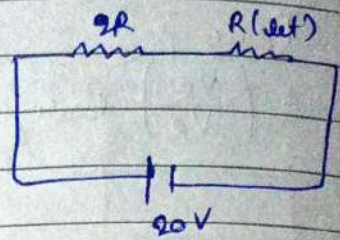 2R R(let)
20V